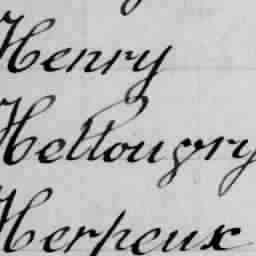 Henry
Hellougry
Herpeux